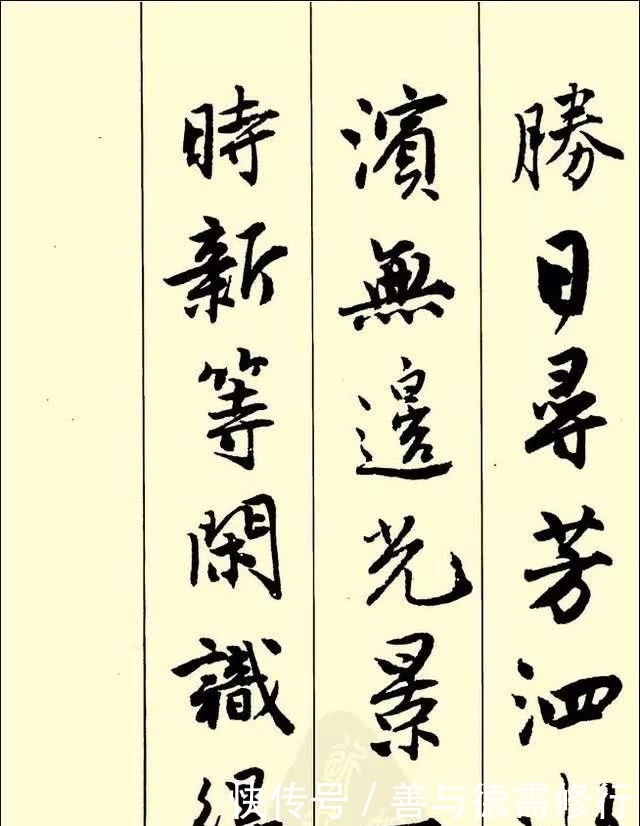 勝日尋芳泗
濱無邊光景
時新等閑識
快传号/善与德需修行